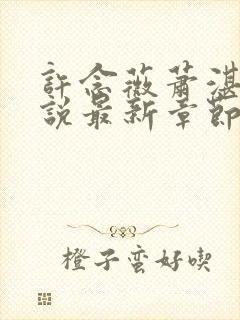 許念薇蕭湛
說最新章節
橙子蛮好喫